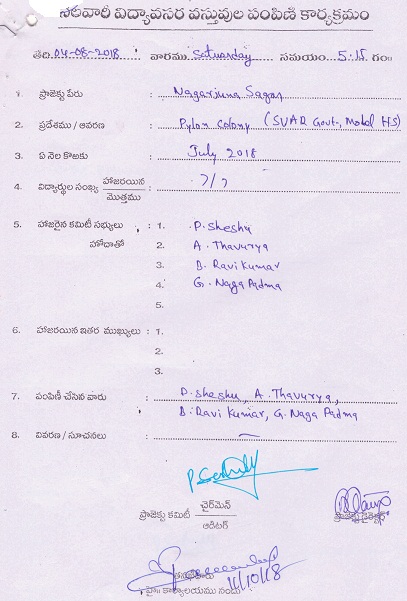 నెలవారీ విద్యావసర వస్తువుల పంపిణీ కార్యక్రమం
తేది: 04-08-2018 వారము Saturday సమయం 5:15 గం॥
1. ప్రాజెక్టు పేరు : Nagarjuna Sagar
2. ప్రదేశము / ఆవరణ : Pylon Colony (SVAR Govt., Model HS)
3. ఏ నెల కొఱకు : July 2018
4. విద్యార్థుల సంఖ్య హాజరయిన / మొత్తము : 7/7
5. హాజరైన కమిటీ సభ్యులు : 1. P. Sheshu
హోదాతో 2. A. Thavurya
3. B. Ravi Kumar
4. G. Naga Padma
5.
6. హాజరయిన ఇతర ముఖ్యులు : 1.
2.
3.
7. పంపిణీ చేసిన వారు : P. Sheshu, A. Thavurya,
B. Ravi Kumar, G. Naga Padma
8. వివరణ / సూచనలు : —
ప్రాజెక్టు కమిటీ ఛైర్‌మెన్ / ఆడిటర్
ప్రాజెక్టు డైరెక్టర్
11/10/18
హై॥ కార్యాలయము నందు